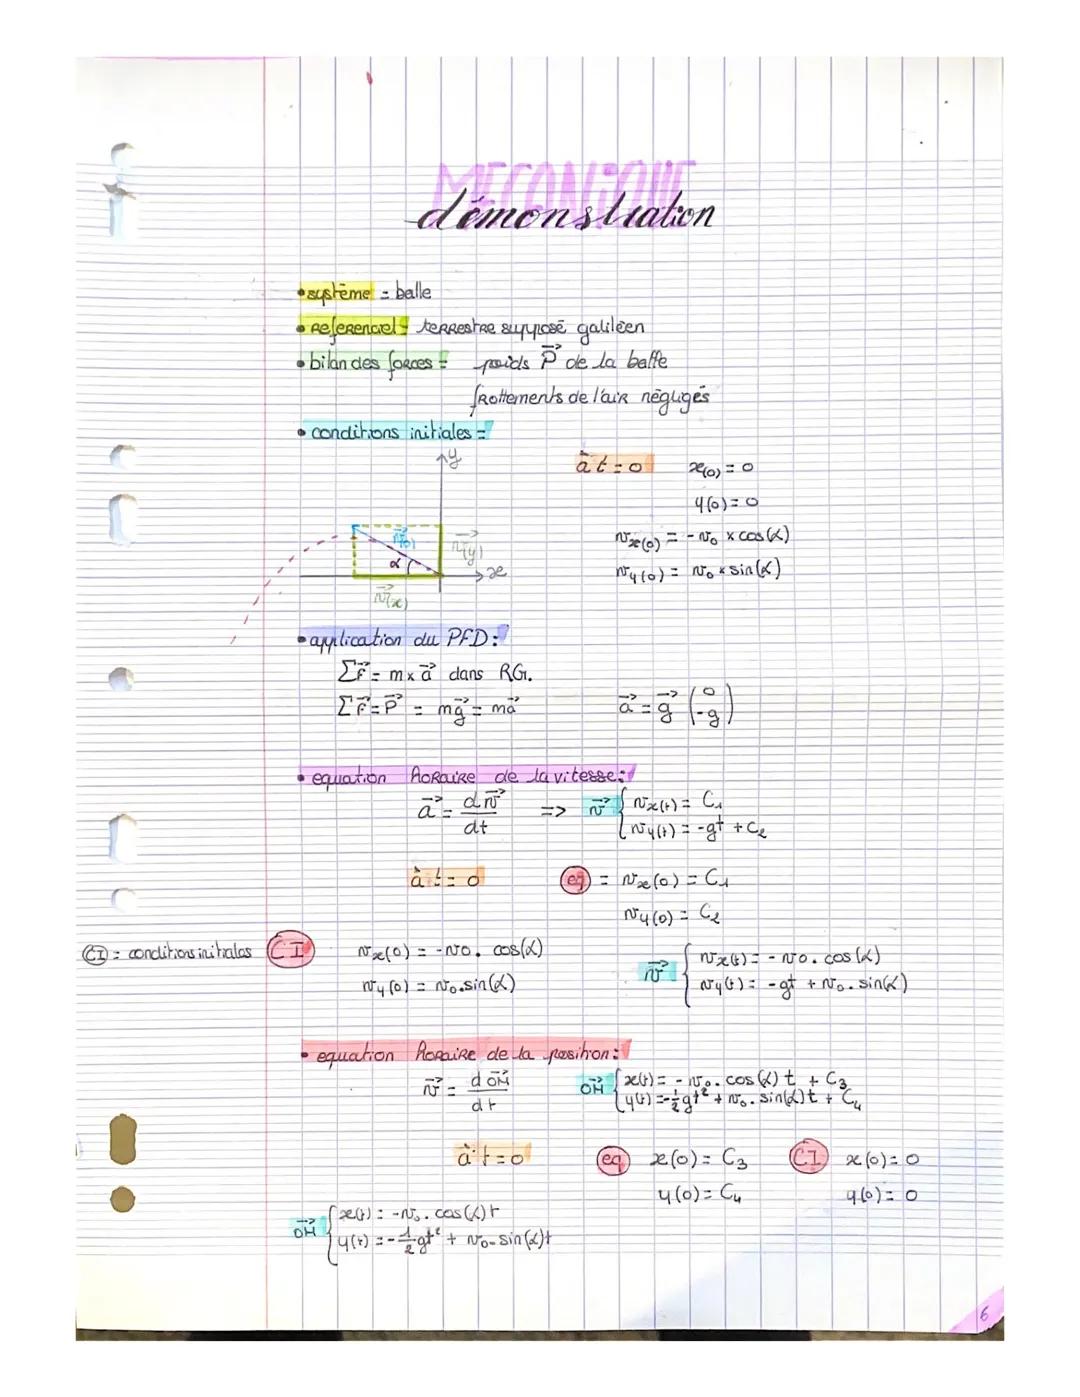 MECANIQUE
démonstration
• système = balle
• Referenciel = terrestre supposé galiléen
• bilan des forces = poids P⃗ de la balle
frottements de l'air négligés
• conditions initiales =
y
à t = 0 x(0) = 0
y(0) = 0
v⃗(0) v⃗(y) vx(0) = - v₀ × cos(α)
α x vy(0) = v₀ × sin(α)
v⃗(x)
• application du PFD :
ΣF⃗ = m × a⃗ dans RG.
ΣF⃗ = P⃗ = mg⃗ = ma⃗ a⃗ = g⃗ (0 -g)
• equation horaire de la vitesse :
a⃗ = dv⃗/dt => v⃗ { vx(t) = C₁
vy(t) = -gt + C₂
à t = 0 eq = vx(0) = C₁
vy(0) = C₂
CI = conditions initiales CI vx(0) = -v0. cos(α) v⃗ { vx(t) = - v0. cos(α)
vy(0) = v₀.sin(α) vy(t) = -gt + v₀. sin(α)
• equation horaire de la position :
v⃗ = dOM⃗/dt OM⃗ { x(t) = - v₀. cos(α) t + C₃
y(t) = -½gt² + v₀. sin(α)t + C₄
à t = 0 eq x(0) = C₃ CI x(0) = 0
y(0) = C₄ y(0) = 0
OM⃗ { x(t) = -v₀. cos(α)t
y(t) = -½gt² + v₀. sin(α)t
6